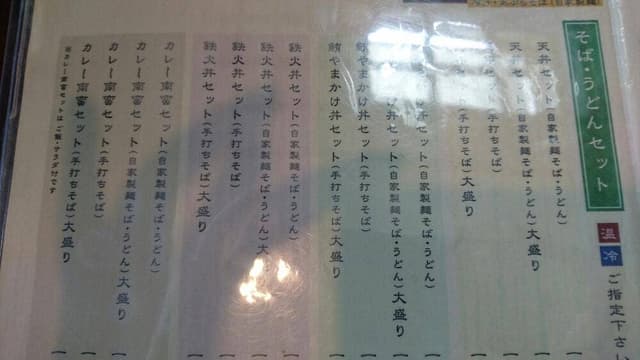 そば・うどんセット
温
冷
ご指定下さい
天丼セット(自家製麺そば・うどん)
天丼セット(自家製麺そば・うどん)大盛り
天丼セット(手打ちそば)
セット(手打ちそば)大盛り
(自家製麺そば・うどん)
鮪やまかけ丼セット(自家製麺そば・うどん)大盛り
鮪やまかけ丼セット(手打ちそば)
鮪やまかけ丼セット(手打ちそば)大盛り
鉄火丼セット(自家製麺そば・うどん)
鉄火丼セット(自家製麺そば・うどん)大盛り
鉄火丼セット(手打ちそば)
鉄火丼セット(手打ちそば)大盛り
カレー南蛮セット(自家製麺そば・うどん)
カレー南蛮セット(自家製麺そば・うどん)大盛り
カレー南蛮セット(手打ちそば)
カレー南蛮セット(手打ちそば)大盛り
※カレー南蛮セットはご飯・サラダ付です